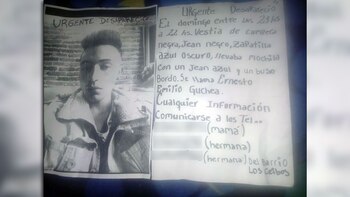 URGENTE DESAPARECIO
URgente Desaparació
El domingo entre las 20 Hs
a 22 Hs. Vestia de campera
negra, Jean negro, zapatilla
azul oscuro, llevaba mochila
con un Jean azul y un buso
Bordo. Se llama Ernesto
Emilio Guchea.
Cualquier Información
Comunicarse a los Tel..
(mamá)
(hermana)
(hermana) Del Barrio
Los Ceibos